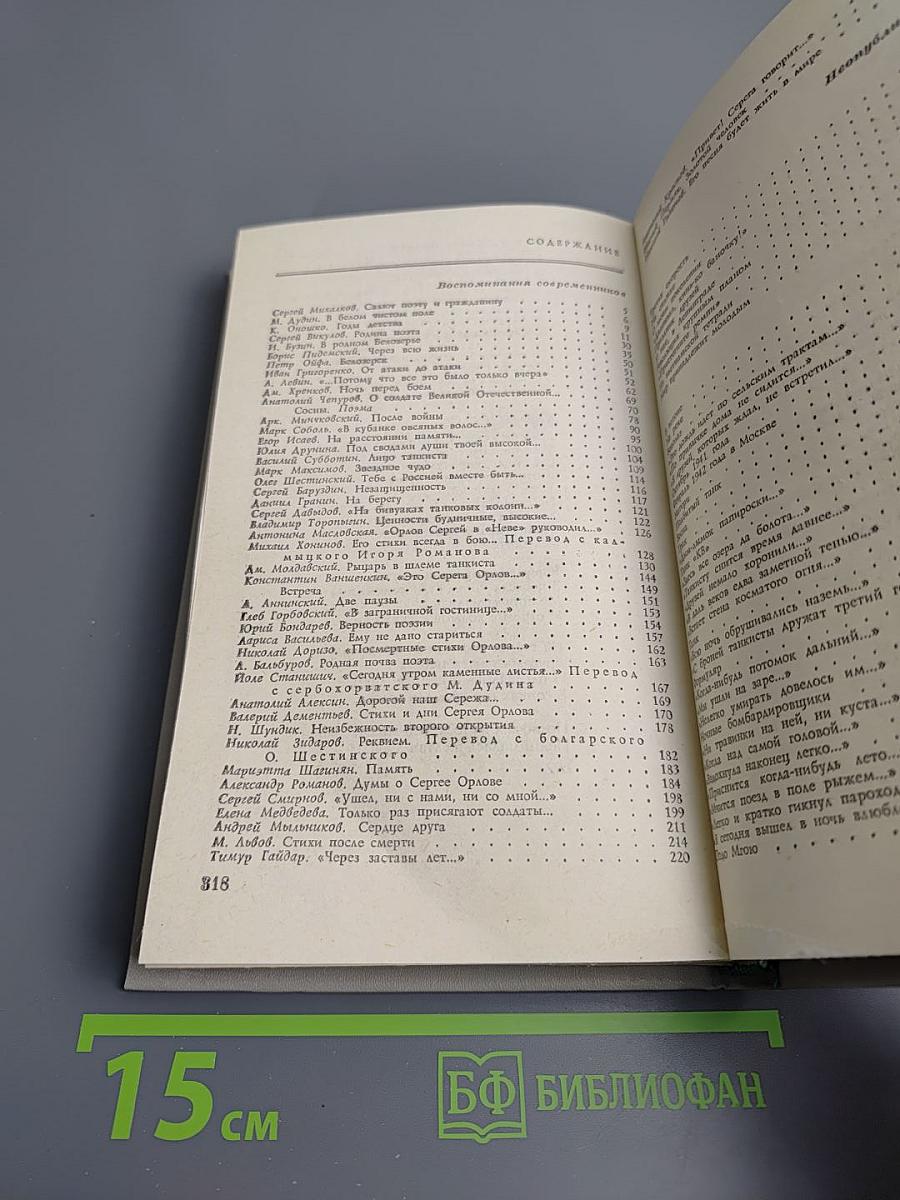 СОДЕРЖАНИЕ
Воспоминания современников
Сергей Михалков. Салют поэту и гражданину 5
М. Дудин. В белом чистом поле 6
К. Оношко. Годы детства 9
Сергей Викулов. Родина поэта 11
И. Бузин. В родном Белозерье 30
Борис Пидемский. Через всю жизнь 35
Петр Ойфа. Белозерск 50
Иван Григоренко. От атаки до атаки 51
А. Левин. «...Потому что все это было только вчера» 52
Дм. Хренков. Ночь перед боем 62
Анатолий Чепуров. О солдате Великой Отечественной... 69
Сосны. Поэма 70
Арк. Минчковский. После войны 78
Марк Соболь. «В кубанке овсяных волос...» 90
Егор Исаев. На расстоянии памяти... 95
Юлия Друнина. Под сводами души твоей высокой... 100
Василий Субботин. Лицо танкиста 104
Марк Максимов. Звездное чудо 109
Олег Шестинский. Тебе с Россией вместе быть... 114
Сергей Баруздин. Незащищенность 116
Даниил Гранин. На берегу 117
Сергей Давыдов. «На бивуаках танковых колонн...» 121
Владимир Торопыгин. Ценности будничные, высокие... 122
Антонина Масловская. «Орлов Сергей в «Неве» руководил...» 126
Михаил Хонинов. Его стихи всегда в бою... Перевод с кал-
мыцкого Игоря Романова 128
Дм. Молдавский. Рыцарь в шлеме танкиста 130
Константин Ваншенкин. «Это Серега Орлов...» 144
Встреча 149
Л. Аннинский. Две паузы 151
Глеб Горбовский. «В заграничной гостинице...» 153
Юрий Бондарев. Верность поэзии 154
Лариса Васильева. Ему не дано стариться 157
Николай Доризо. «Посмертные стихи Орлова...» 162
А. Бальбуров. Родная почва поэта 163
Йоле Станишич. «Сегодня утром каменные листья...» Перевод
с сербохорватского М. Дудина 167
Анатолий Алексин. Дорогой наш Сережа... 169
Валерий Дементьев. Стихи и дни Сергея Орлова 170
Н. Шундик. Неизбежность второго открытия 178
Николай Зидаров. Реквием. Перевод с болгарского
О. Шестинского 182
Мариэтта Шагинян. Память 183
Александр Романов. Думы о Сергее Орлове 184
Сергей Смирнов. «Ушел, ни с нами, ни со мной...» 198
Елена Медведева. Только раз присягают солдаты... 199
Андрей Мыльников. Сердце друга 211
М. Львов. Стихи после смерти 214
Тимур Гайдар. «Через заставы лет...» 220
318
«Привет! Серега говорит...»
Золотой человек
Его песня будет жить в мире
крупным планом
принадлежит молодым
идет по сельским трактам...»
дома не сидится...»
которых ждал, не встретил...»
1941 года
1942 года в Москве
танк
папироски...»
«КВ»
все озера да болота...»
снится время давнее...»
немало хоронили...»
даль веков едва заметной тенью...»
стена косматого огня...»
ночь обрушивались наземь...»
броней танкисты дружат третий
«Когда-нибудь потомок дальний...»
ушли на заре...»
умирать довелось им...»
Ночные бомбардировщики
травинки на ней, ни куста...»
«Когда над самой головой...»
наконец легко...»
Приснится когда-нибудь лето...
поезд в поле рыжем...»
и кратко гикнул пароход
сегодня вышел в ночь
Мгою
15 см
БФ БИБЛИОФАН